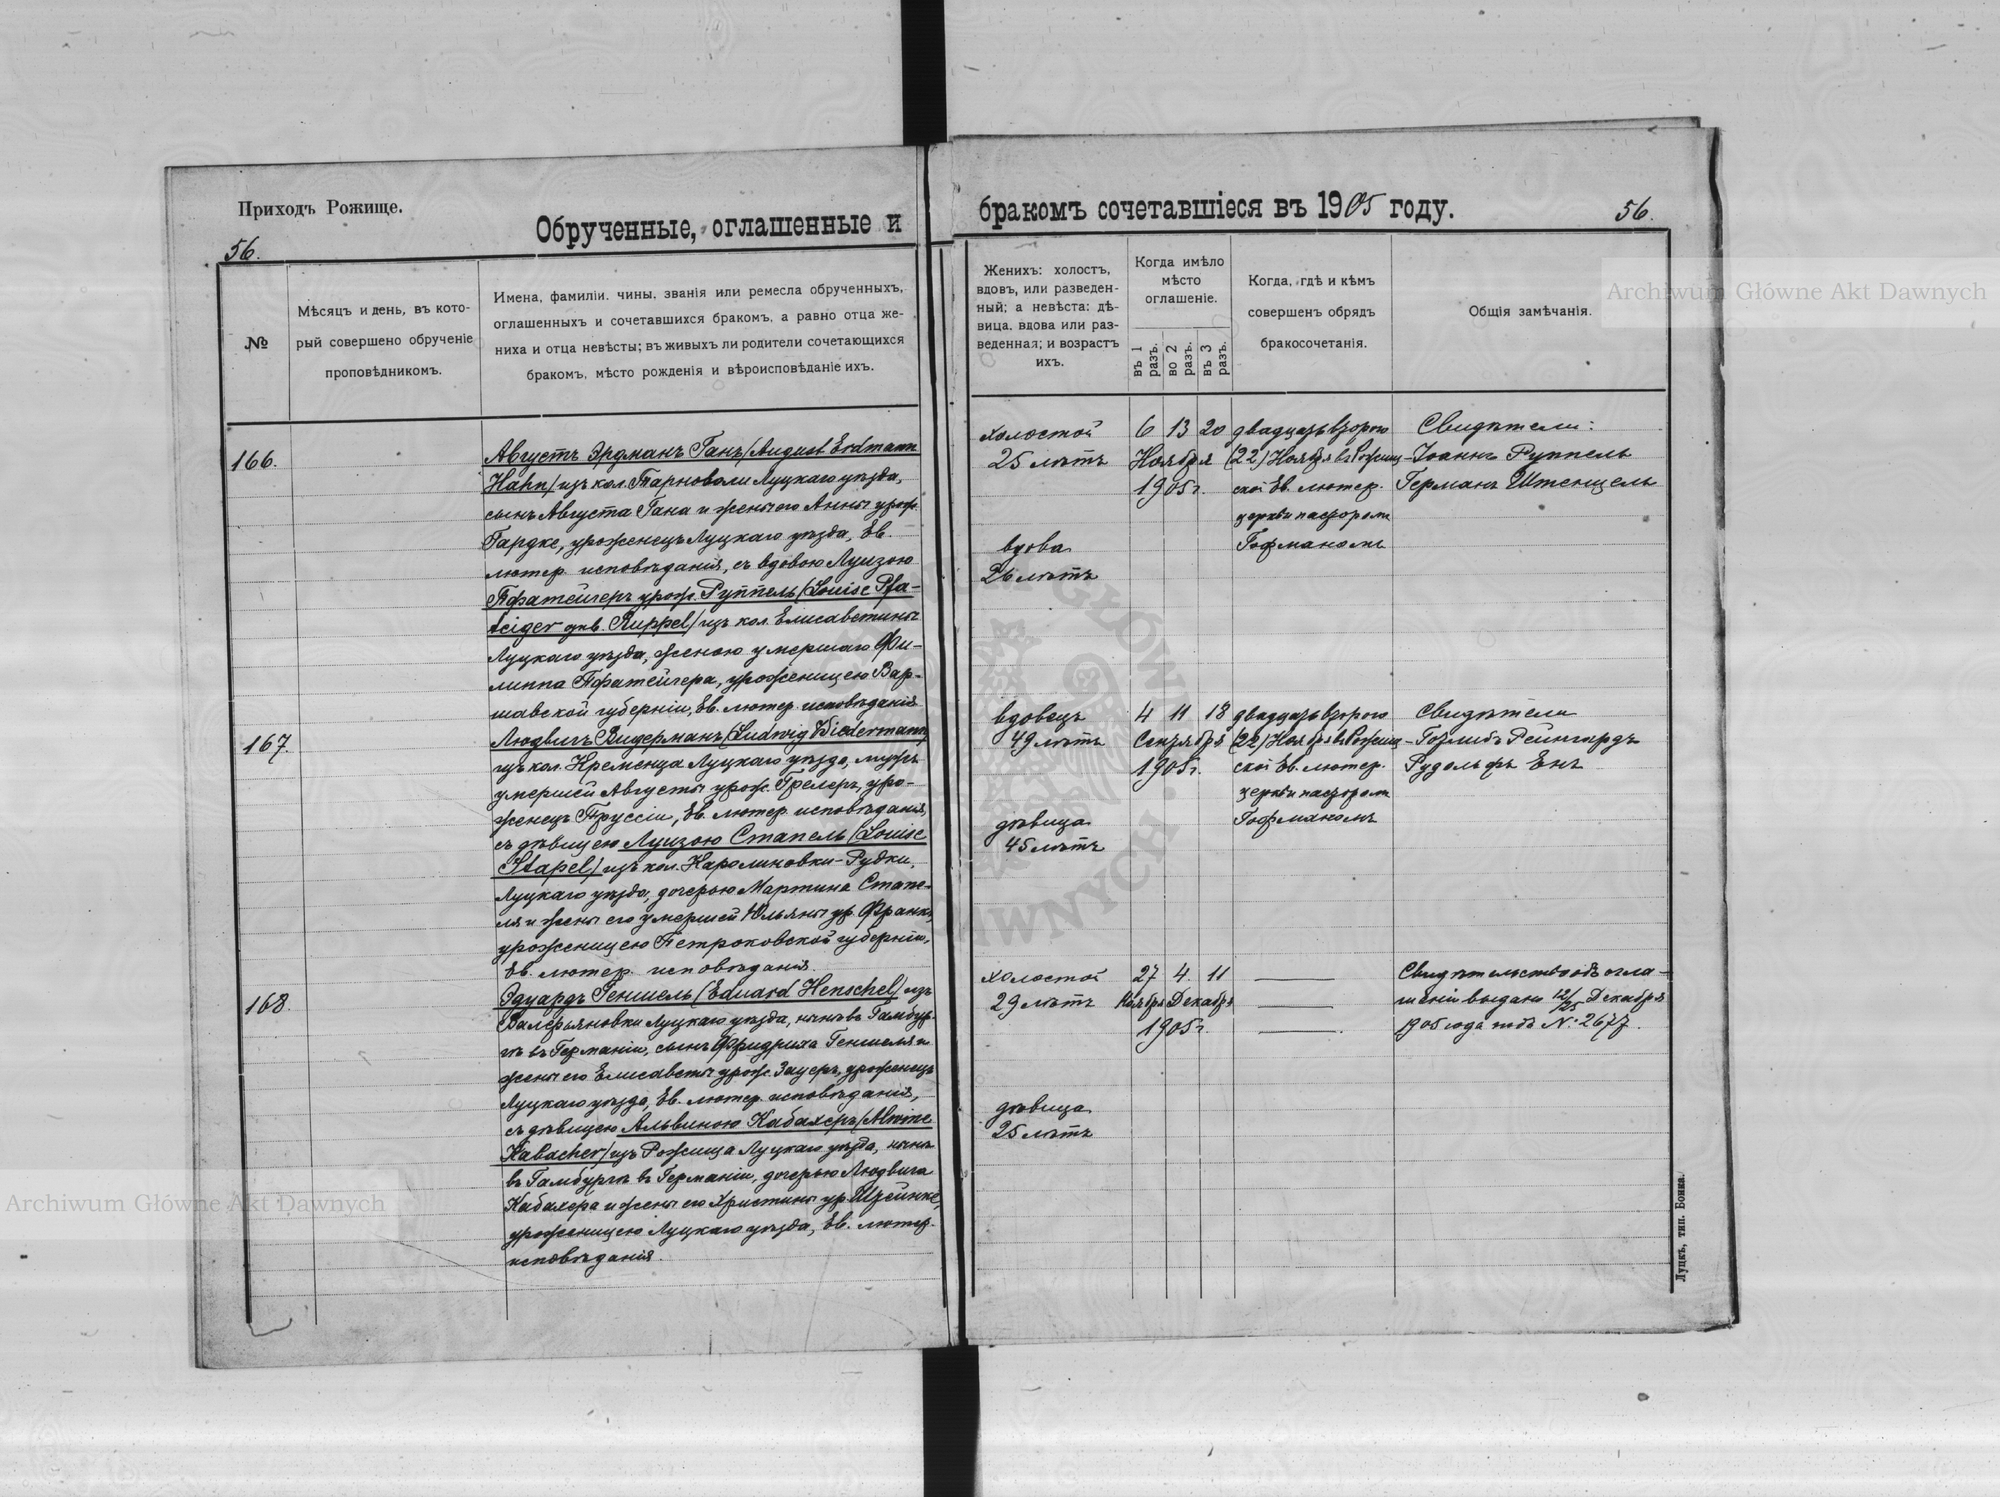 Приходъ Рожище.
56.
Обрученные, оглашенные и
бракомъ сочетавшіеся въ 1905 году.
56.
№
Мѣсяцъ и день, въ кото-
рый совершено обрученіе
проповѣдникомъ.
Имена, фамиліи, чины, званія или ремесла обрученныхъ,
оглашенныхъ и сочетавшихся бракомъ, а равно отца же-
ниха и отца невѣсты; въ живыхъ ли родители сочетающихся
бракомъ, мѣсто рожденія и вѣроисповѣданіе ихъ.
Женихъ: холостъ,
вдовъ, или разведен-
ный; а невѣста: дѣ-
вица, вдова или раз-
веденная; и возрастъ
ихъ.
Когда имѣло
мѣсто
оглашеніе.
въ 1 разъ.
во 2 разъ.
въ 3 разъ.
Когда, гдѣ и кѣмъ
совершенъ обрядъ
бракосочетанія.
Общія замѣчанія.
166.
Августъ Эрдманъ Ганъ (August Erdmann
Hahn) изъ кол. Тарноволи Луцкаго уѣзда,
сынъ Августа Гана и жены его Анны урож.
Гардке, уроженецъ Луцкаго уѣзда, Ев.
лютер. исповѣданія, съ вдовою Луизою
Пфатейгеръ урож. Руппель (Louise Pfa-
teiger geb. Ruppel) изъ кол. Елисаветины
Луцкаго уѣзда, женою умершаго Фи-
липпа Пфатейгера, уроженицею Вар-
шавской губерніи, Ев. лютер. исповѣданія
холостой
25 лѣтъ
вдова
26 лѣтъ
6 13 20
Ноября
1905 г.
двадцать второго
(22) Ноября въ Рожищ-
ской Ев. лютер.
церкви пасторомъ
Гофманомъ
Свидѣтели:
Іоаннъ Руппель
Германъ Штенцель
167.
Людвигъ Видерманъ (Ludwig Wiedermann)
изъ кол. Кременца Луцкаго уѣзда, мужъ
умершей Августы урож. Грелеръ, уро-
женецъ Пруссіи, Ев. лютер. исповѣданія,
съ дѣвицею Луизою Стапель (Louise
Stapel) изъ кол. Каролиновки-Рудки,
Луцкаго уѣзда, дочерью Мартина Стапе-
ля и жены его умершей Юльяны ур. Франкъ,
уроженицею Петроковской губерніи,
Ев. лютер. исповѣданія.
вдовецъ
49 лѣтъ
дѣвица
45 лѣтъ
4 11 18
Сентября
1905 г.
двадцать второго
(22) Ноября въ Рожищ-
ской Ев. лютер.
церкви пасторомъ
Гофманомъ
Свидѣтели
Готлибъ Рейнгардъ
Рудольфъ Енъ
168.
Эдуардъ Геншель (Eduard Henschel) изъ
Валерьяновки Луцкаго уѣзда, нынѣ въ Гамбур-
гѣ въ Германіи, сынъ Фридриха Геншеля и
жены его Елисаветы урож. Зауеръ, уроженецъ
Луцкаго уѣзда, Ев. лютер. исповѣданія,
съ дѣвицею Альвиною Кабахеръ (Alwine
Kabacher) изъ Рожища Луцкаго уѣзда, нынѣ
въ Гамбургѣ въ Германіи, дочерью Людвига
Кабахера и жены его Христины ур. Штейнке,
уроженицею Луцкаго уѣзда, Ев. лютер.
исповѣданія.
холостой
29 лѣтъ
дѣвица
25 лѣтъ
27 4 11
Ноября Декабря
1905 г.
Свидѣтельство объ огла-
шеніи выдано 12/25 Декабря
1905 года подъ №: 2677.
Луцкъ, тип. Бонка.
Archiwum Główne Akt Dawnych
Archiwum Główne Akt Dawnych